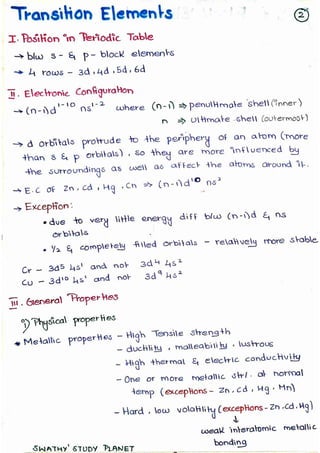 Transition Elements
2
I. Position in Periodic Table
→ b/w s- & p-block elements
→ 4 rows - 3d, 4d, 5d, 6d
II. Electronic Configuration
→ (n-1)d¹⁻¹⁰ ns¹⁻² where (n-1) ⇒ penultimate shell (inner)
n ⇒ ultimate shell (outermost)
→ d orbitals protrude to the periphery of an atom (more
than s & p orbitals), so they are more influenced by
the surroundings as well as affect the atoms around it.
→ E.C of Zn, Cd, Hg, Cn ⇒ (n-1)d¹⁰ ns²
→ Exception:
• due to very little energy diff b/w (n-1)d & ns
orbitals
• 1/2 & completely filled orbitals - relatively more stable
Cr - 3d⁵ 4s¹ and not 3d⁴ 4s²
Cu - 3d¹⁰ 4s¹ and not 3d⁹ 4s²
III. General Properties
1) Physical properties
* Metallic properties - High Tensile strength
- ductility, malleability, lustrous
- High thermal & electric conductivity
- One or more metallic str/. at normal
temp (exceptions - Zn, Cd, Hg, Mn)
- Hard, low volatility (exceptions - Zn, Cd, Hg)
↓
weak interatomic metallic
bonding
SWATHY'S STUDY PLANET